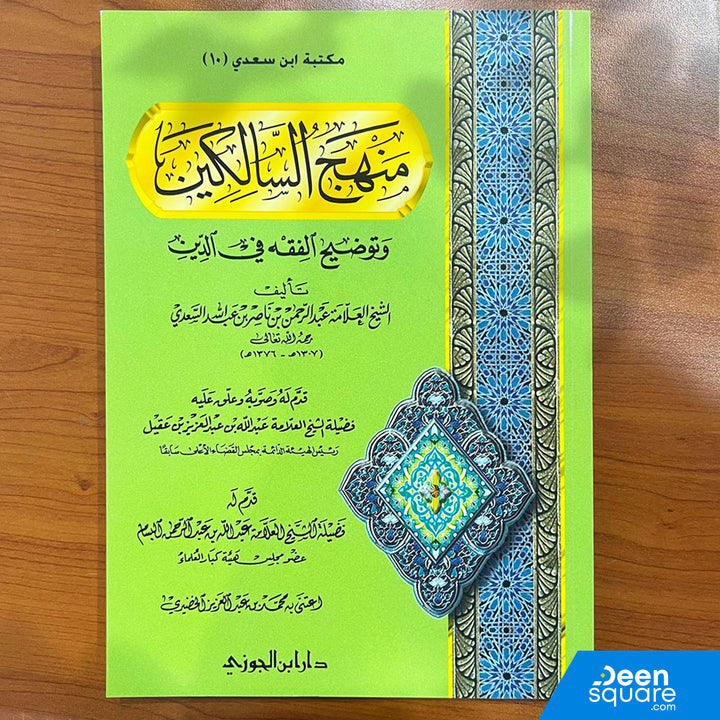 مكتبة ابن سعدي (١٠)
مَنْهَجُ السَّالِكِين
وَتوضيح الفِقه في الدِّين
تَأليف
الشيخ العَلّامة عَبْد الرَّحمٰن بْن نَاصِر بْن عَبد الله السَّعْدي
رحمهُ الله تعَالى
(١٣٠٧هـ - ١٣٧٦هـ)
قدّم لَهُ وَصَوّبهُ وعلّق عَليه
فضيلة الشيخ العلامة عَبد الله بن عَبد العزيز بن عَقيل
رَئيس الهيئة الدّائمة بمجلس القضَاء الأعلى سابقًا
قدّم لَه
فضيلة الشيخ العلّامة عَبد الله بن عَبد الرّحمٰن البسام
عضو مجلس هيئة كبار العُلماء
اعتنى به محمّد بن عَبد العَزيز الخضيري
دار ابن الجوزي
Deen
square
.com